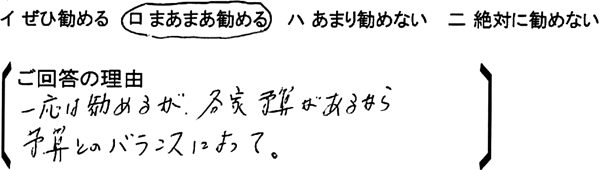 イ ぜひ勧める ロ まあまあ勧める ハ あまり勧めない ニ 絶対に勧めない
ご回答の理由
一応は勧めるが、各家予算があるから
予算とのバランスによって。